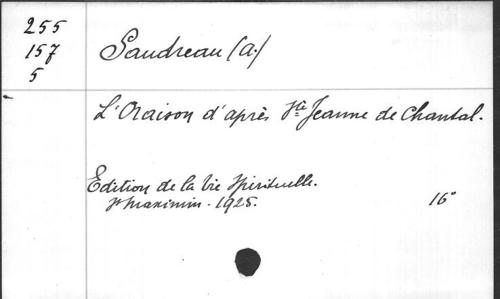 255
157
5
Saudreau (A.)
L'Oraison d'après Ste Jeanne de Chantal.
Edition de la Vie Spirituelle.
St Maximin - 1925.
16°